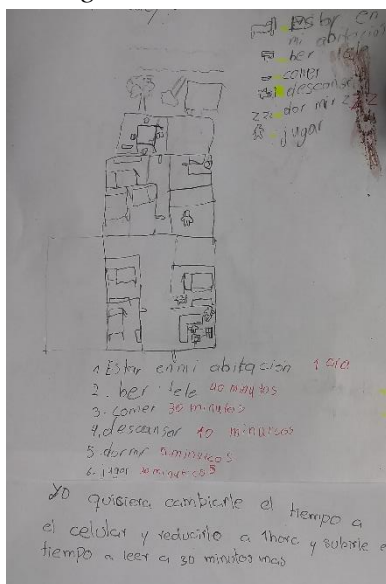 Estar en
mi abitacion
ber tele
comer
descansar
dormir z z z
jugar
1 Estar en mi abitacion 1 dia
2. ber tele 40 minutos
3. comer 30 minutos
4, descansar 10 minutos
5. dormir 5 minutos
6. jugar minutos
yo quisiera cambiarle el tiempo a
el celular y reducirlo a 1 hora y subirle e
tiempo a leer a 30 minutos mas